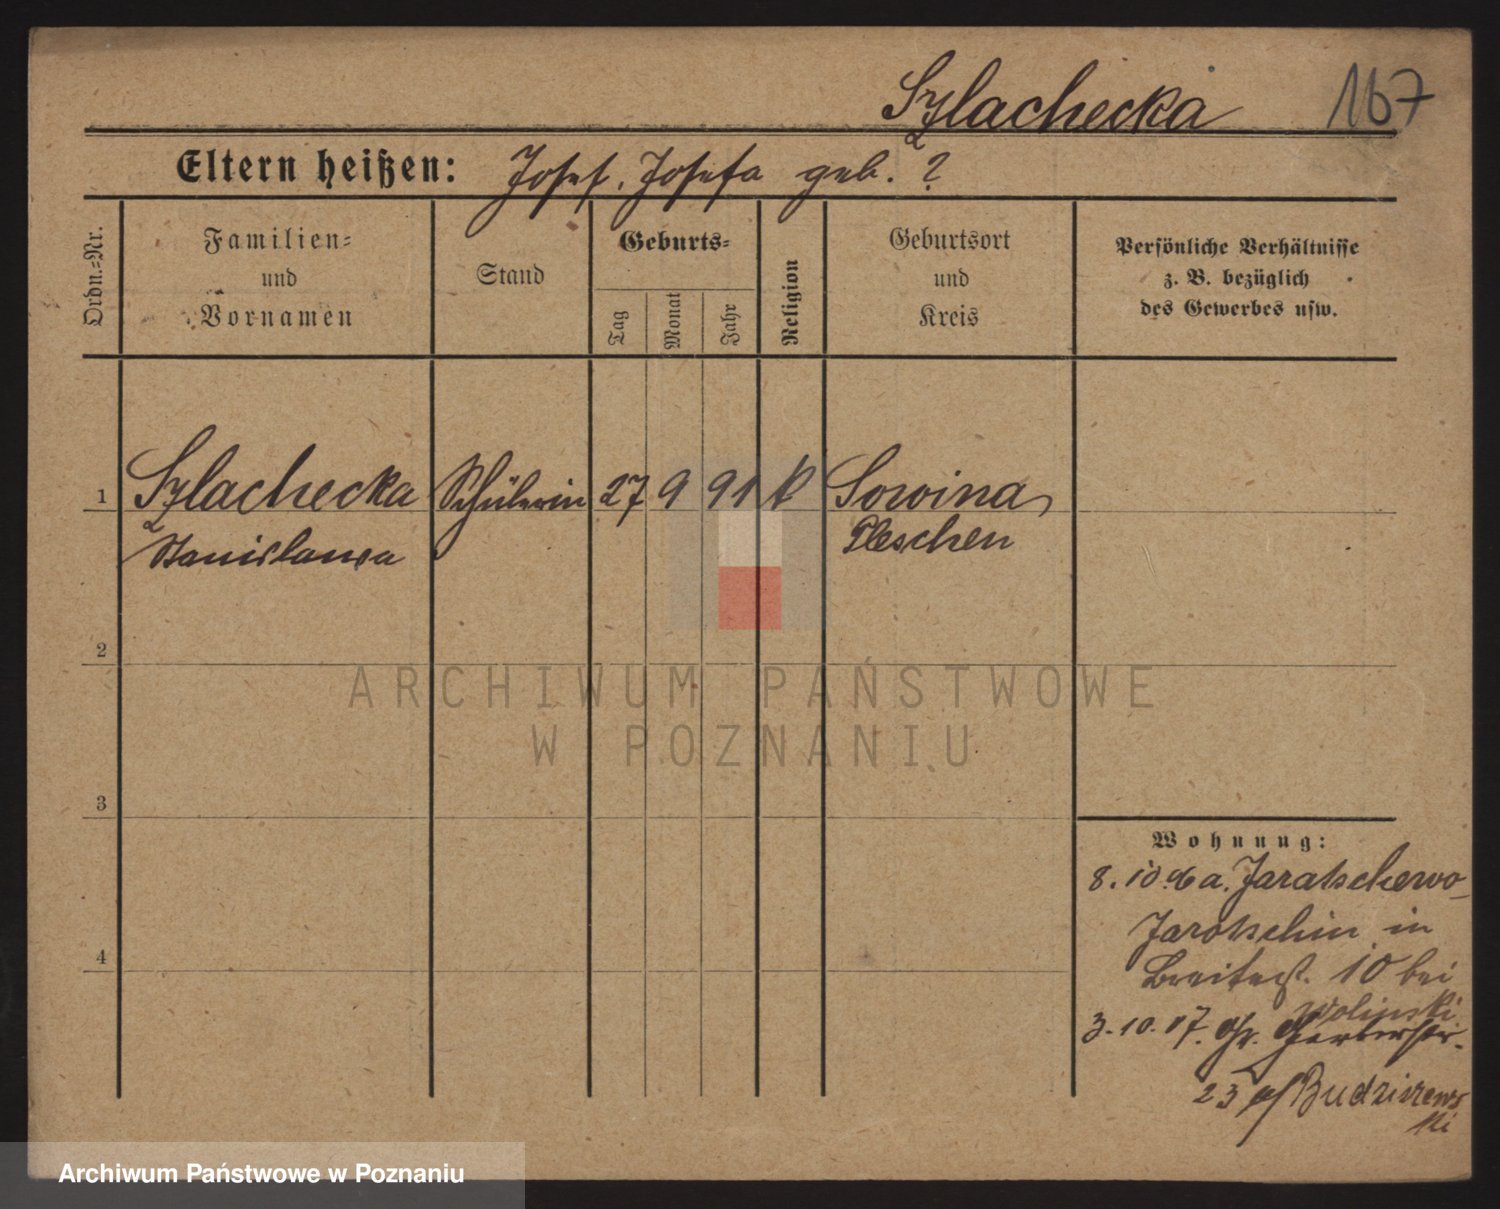 Szlachecka 167
Eltern heißen: Josef, Josefa geb. ?
Ordn.=Nr.
Familien=
und
Vornamen
Stand
Geburts=
Tag
Monat
Jahr
Religion
Geburtsort
und
Kreis
Persönliche Verhältnisse
z. B. bezüglich
des Gewerbes usw.
1 Szlachecka Schülerin 27 9 91 k Sowina,
Stanislawa Pleschen
2
3
4
Wohnung:
8. 10. 06 a. Jaratschewo
Jarotschin in
Breitestr. 10 bei
Wolinski
3. 10. 07. Gr. Gerberstr.
23 b/ Budziszews
ki
ARCHIWUM PAŃSTWOWE
W POZNANIU
Archiwum Państwowe w Poznaniu